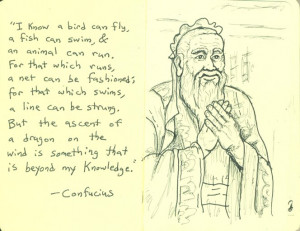 "I know a bird can fly,
a fish can swim, &
an animal can run.
For that which runs,
a net can be fashioned;
for that which swims,
a line can be strung.
But the ascent of
a dragon on the
wind is something that
is beyond my knowledge."
—Confucius